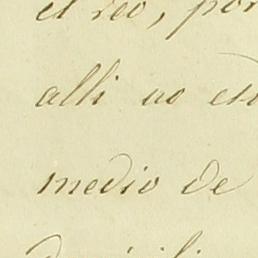 el reo, por
alli no est
medio de